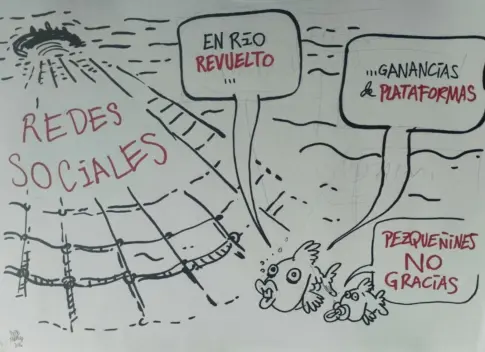 EN RÍO
REVUELTO
...
...GANANCIAS
de PLATAFORMAS
REDES
SOCIALES
PEZQUEÑINES
NO
GRACIAS